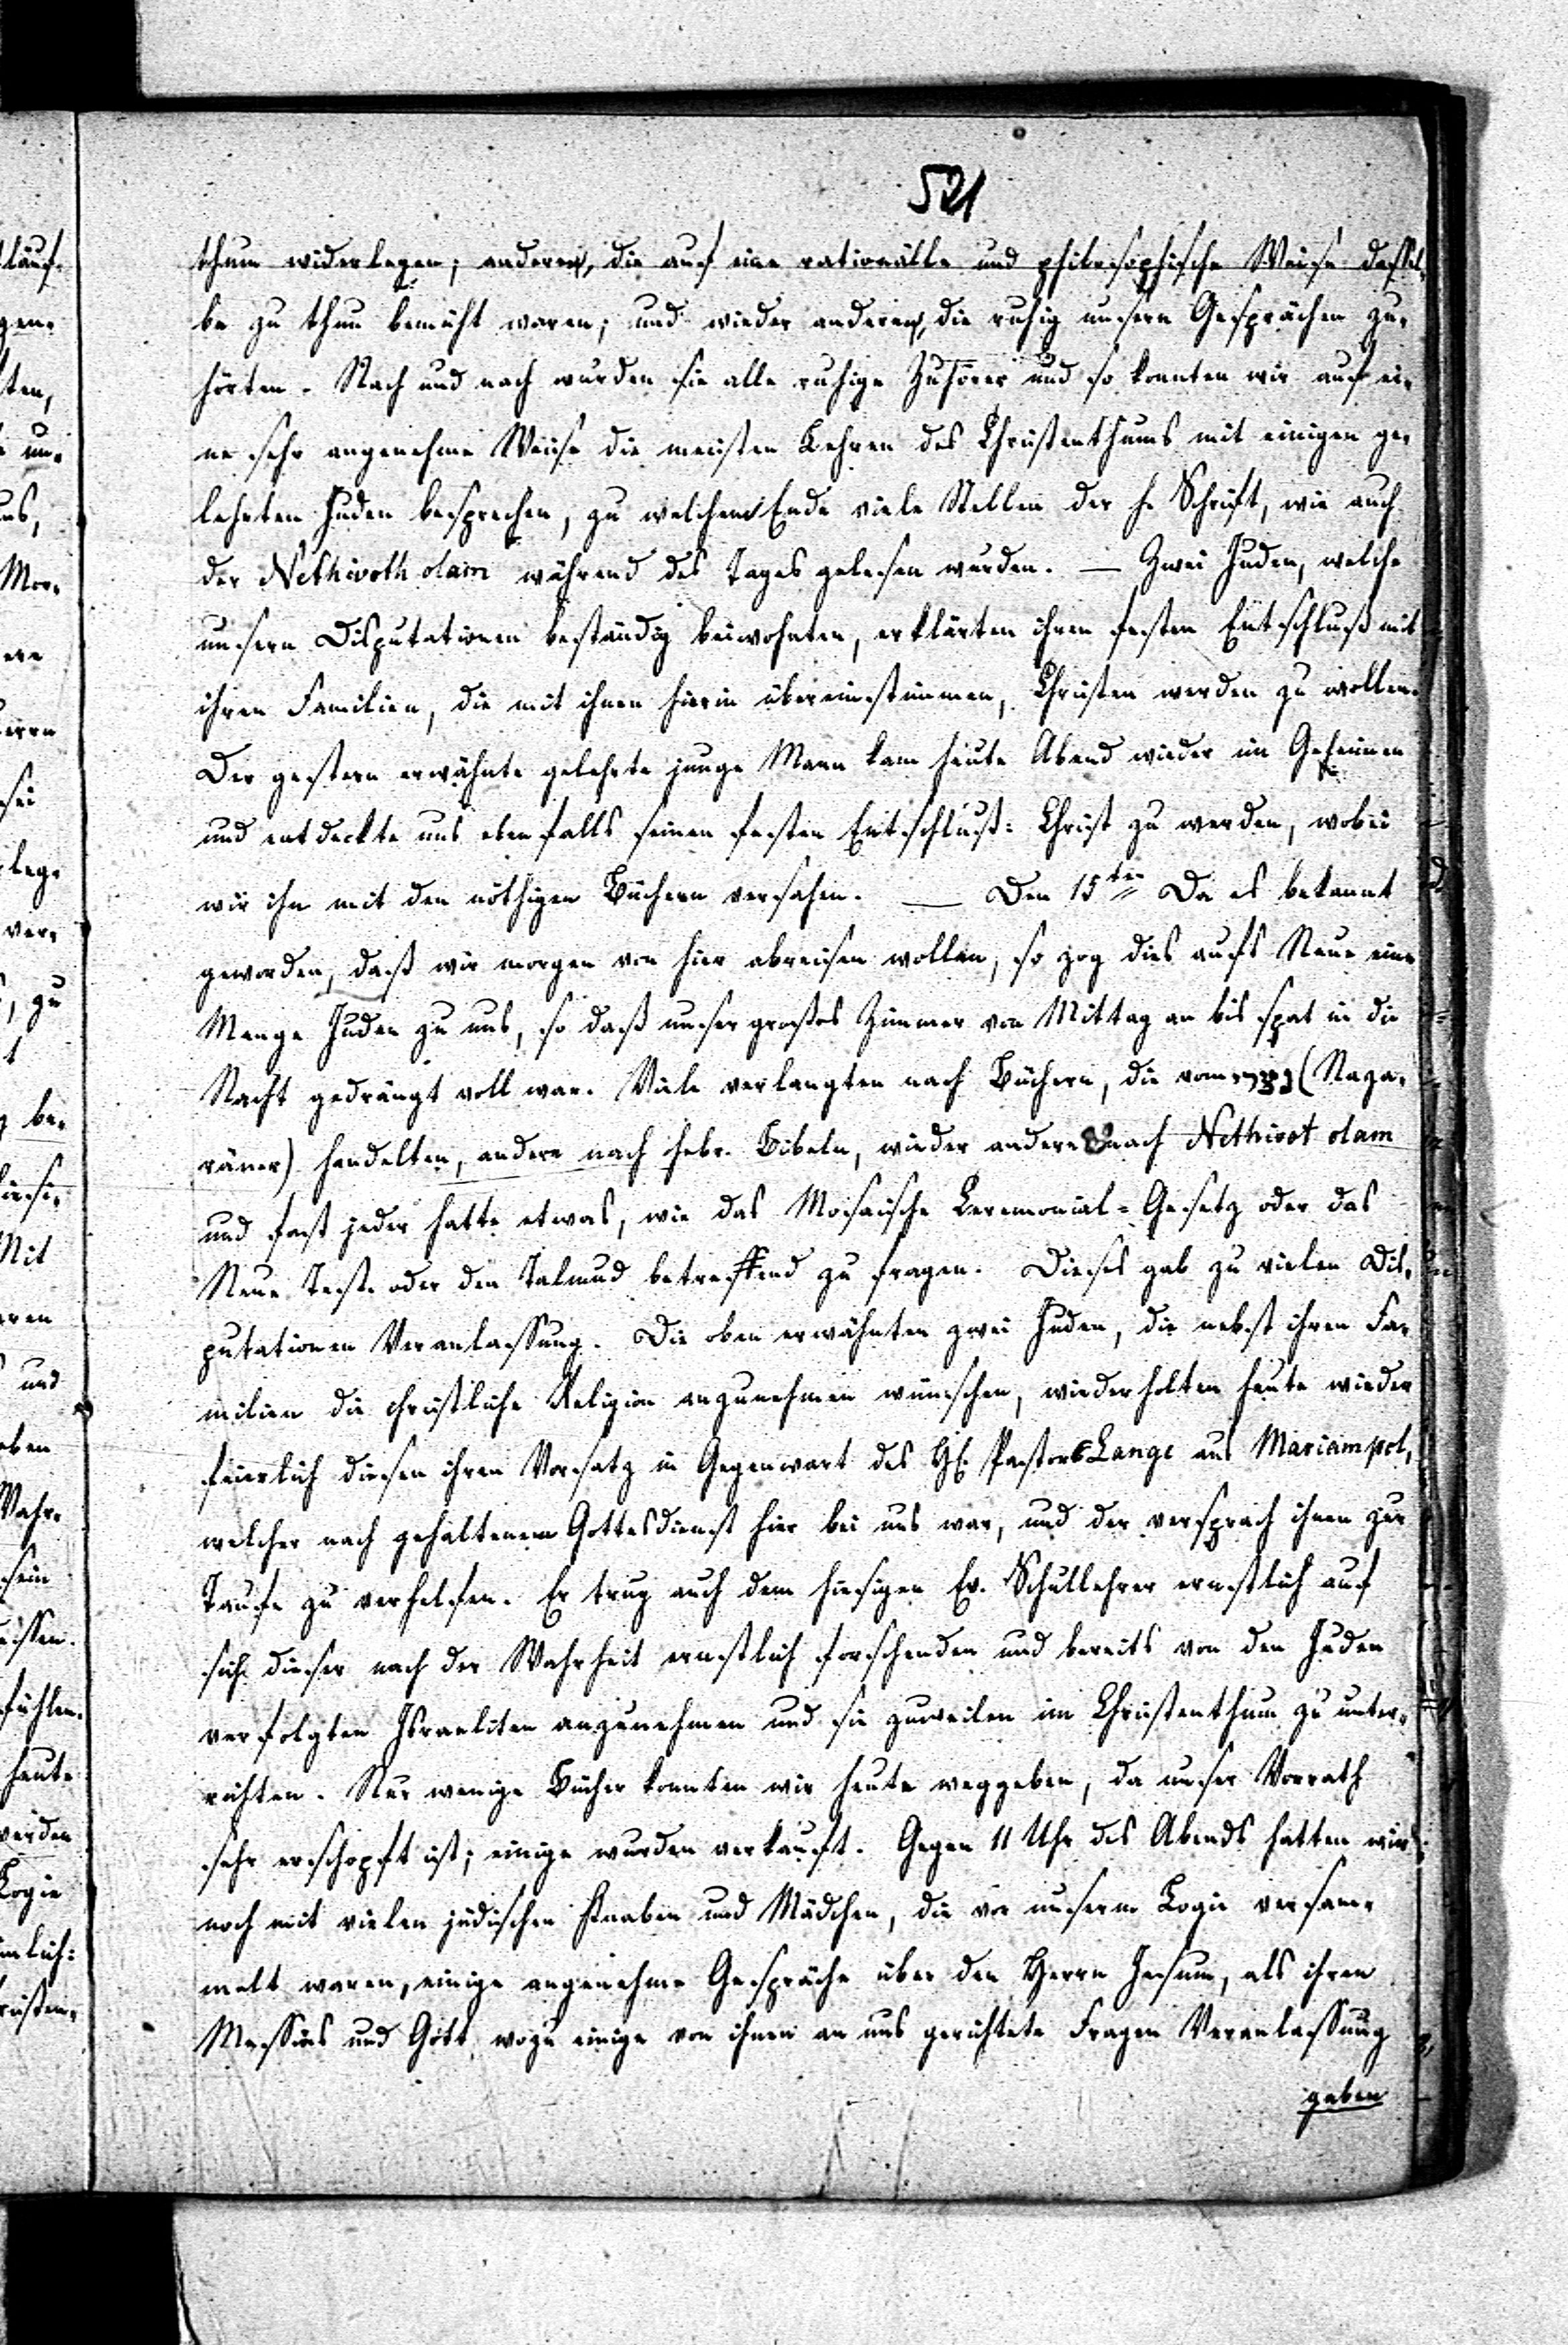 521
thum widerlegen; andere, die auf eine rationälle und philosophische Weise dassel-
be zu thun bemüht waren; und wieder andere, die ruhig unsern Gesprächen zu-
hörten. Nach und nach wurden sie alle ruhige Zuhörer und so konnten wir auf ei-
ne sehr angenehme Weise die meisten Lehren des Christenthums mit einigen ge-
lehrten Juden besprechen, zu welchem Ende viele Stellen der h. Schrift, wie auch
der Nethivoth olam während des Tages gelesen wurden. — Zwei Juden, welche
unsern Disputationen beständig beiwohnten, erklärten ihren festen Entschluß mit
ihren Familien, die mit ihnen hierin übereinstimmen, Christen werden zu wollen.
Der gestern erwähnte gelehrte junge Mann kam heute Abend wieder im Geheimen
und entdeckte uns ebenfalls seinen festen Entschluß: Christ zu werden, wobei
wir ihn mit den nöthigen Büchern versahen. — Den 15ten Da es bekannt
geworden, daß wir morgen von hier abreisen wollen, so zog dies aufs Neue eine
Menge Juden zu uns, so daß unser großes Zimmer von Mittag an bis spat in die
Nacht gedrängt voll war. Viele verlangten nach Büchern, die vom נצרי (Naza-
räner) handelten, andere nach hebr. Bibeln, wieder andere nach Nethivot olam
und fast jeder hatte etwas, wie das Mosaische Ceremonial-Gesetz oder das
Neue Test. oder den Talmud betreffend zu fragen. Dieses gab zu vielen Dis-
putationen Veranlassung. Die oben erwähnten zwei Juden, die nebst ihren Fa-
milien die christliche Religion anzunehmen wünschen, wiederholten heute wieder
feierlich diesen ihren Vorsatz in Gegenwart des H. Pastors Lange aus Mariampol,
welcher nach gehaltenem Gottesdienst hier bei uns war, und der versprach ihnen zur
Taufe zu verhelfen. Er trug auch dem hiesigen Ev. Schullehrer ernstlich auf
sich dieser nach der Wahrheit ernstlich forschenden und bereits von den Juden
verfolgten Israeliten anzunehmen und sie zuweilen im Christenthum zu unter-
richten. Nur wenige Bücher konnten wir heute weggeben, da unser Vorrath
sehr erschopft ist; einige wurden verkauft. Gegen 11 Uhr des Abends hatten wir
noch mit vielen jüdischen Knaben und Mädchen, die vor unserm Logie versam-
melt waren, einige angenehme Gespräche über den Herrn Jesum, als ihren
Messias und Gott, wozu einige von ihnen an uns gerichtete Fragen Veranlassung
gaben